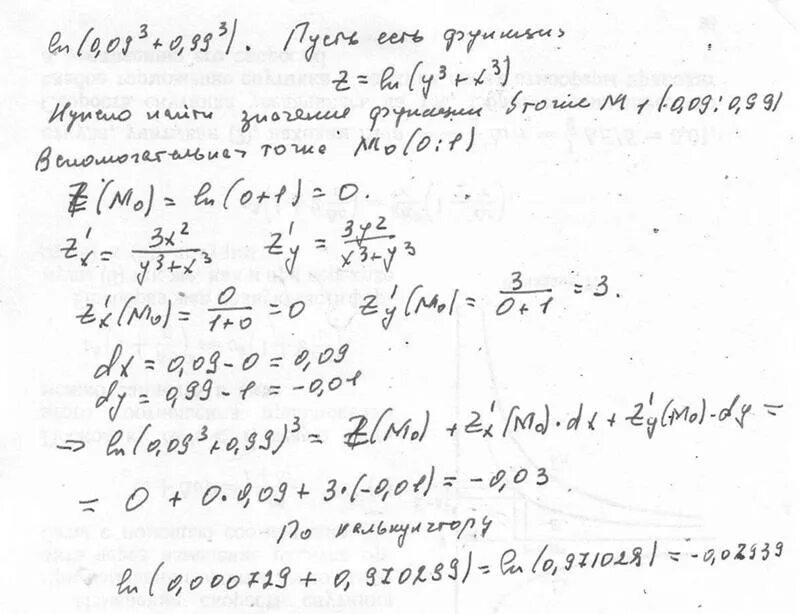 ln(0,09³ + 0,99³). Пусть есть функция
z = ln(y³ + x³)
Нужно найти значение функции в точке M₁(0,09; 0,99)
Вспомогательная точка M₀(0; 1)
Z(M₀) = ln(0+1) = 0.
z'ₓ = 3x²/(y³+x³) z'ᵧ = 3y²/(x³+y³)
z'ₓ(M₀) = 0/(1+0) = 0 z'ᵧ(M₀) = 3/(0+1) = 3.
dx = 0,09 - 0 = 0,09
dy = 0,99 - 1 = -0,01
⇒ ln(0,09³ + 0,99)³ = Z(M₀) + z'ₓ(M₀)·dx + z'ᵧ(M₀)·dy =
= 0 + 0·0,09 + 3·(-0,01) = -0,03
По калькулятору
ln(0,000729 + 0,970299) = ln(0,971028) = -0,02939